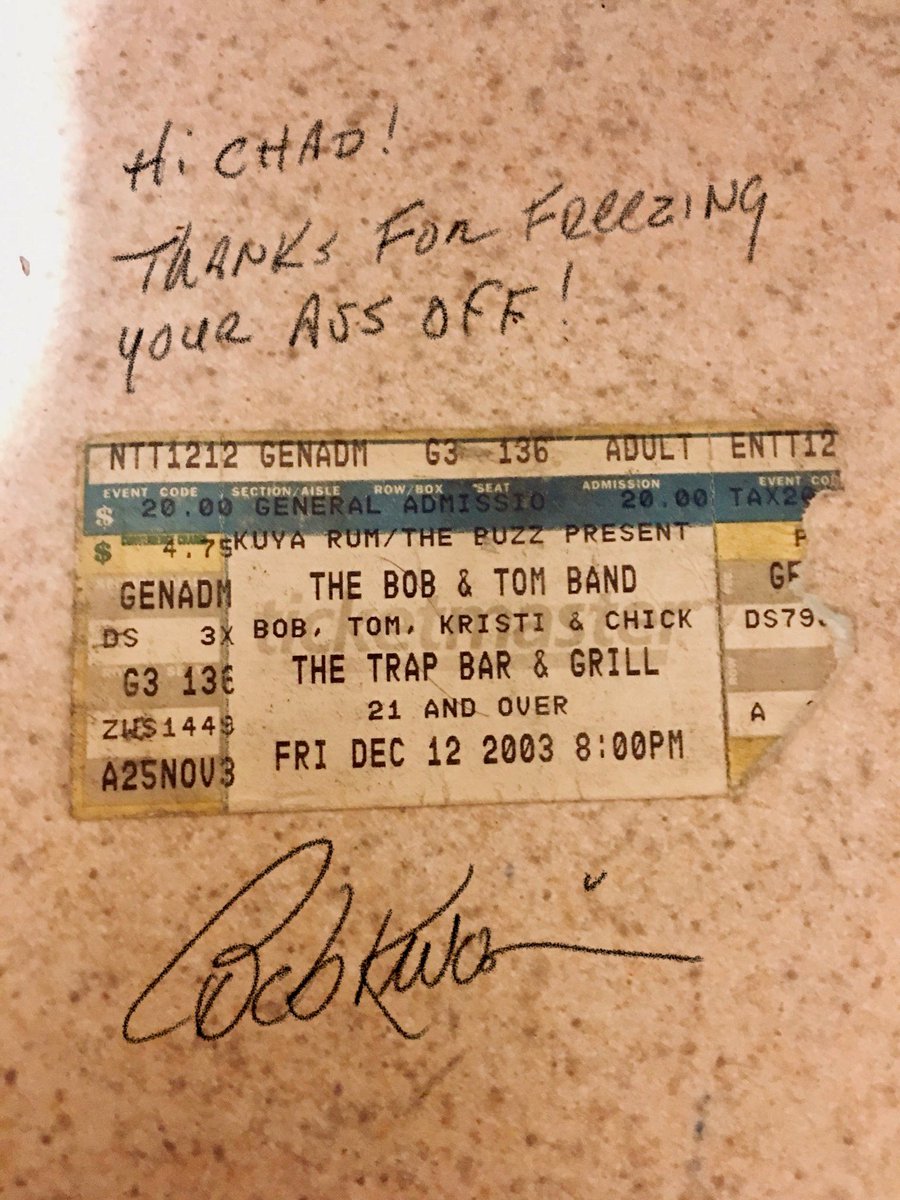 Hi CHAD!
THANKS FOR FREEZING
YOUR ASS OFF!
NTT1212 GENADM G3 136 ADULT ENTT12
EVENT CODE SECTION/AISLE ROW/BOX SEAT ADMISSION EVENT CO
$ 20.00 GENERAL ADMISSIO 20.00 TAX20
$ 4.75 KUYA RUM/THE BUZZ PRESENT
GENADM THE BOB & TOM BAND GE
DS 3X BOB, TOM, KRISTI & CHICK DS79
ticketmaster
G3 136 THE TRAP BAR & GRILL
ZWS1449 21 AND OVER A
A25NOV3 FRI DEC 12 2003 8:00PM
Bob